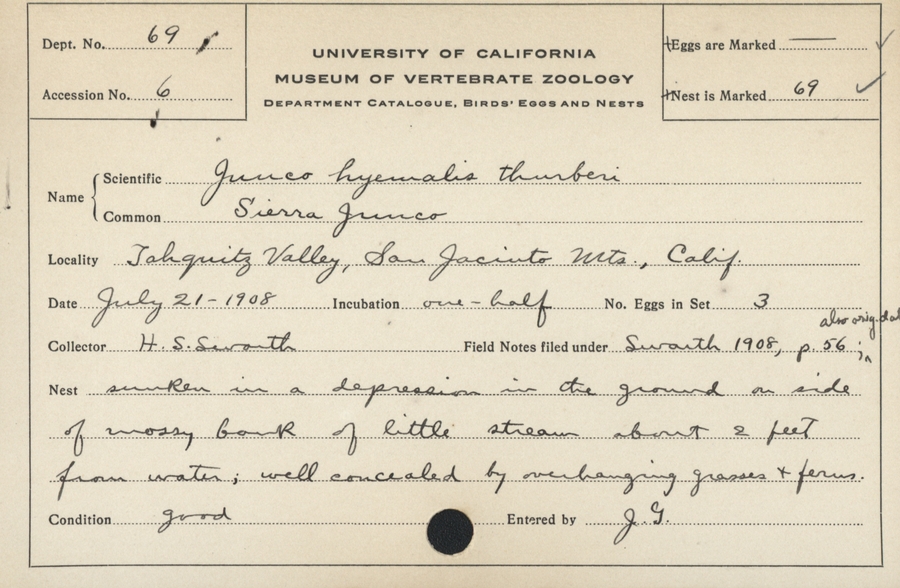 Dept. No. 69
Accession No. 6
UNIVERSITY OF CALIFORNIA
MUSEUM OF VERTEBRATE ZOOLOGY
DEPARTMENT CATALOGUE, BIRDS' EGGS AND NESTS
Eggs are Marked —
Nest is Marked 69 ✓
Name
Scientific Junco hyemalis thurberi
Common Sierra Junco
Locality Tahquitz Valley, San Jacinto Mts., Calif.
Date July 21-1908 Incubation one-half No. Eggs in Set 3
also orig. dat
Collector H. S. Swarth Field Notes filed under Swarth 1908, p. 56 ;
Nest sunken in a depression in the ground on side
of mossy bank of little stream about 2 feet
from water; well concealed by overhanging grasses + ferns.
Condition good Entered by J. G.